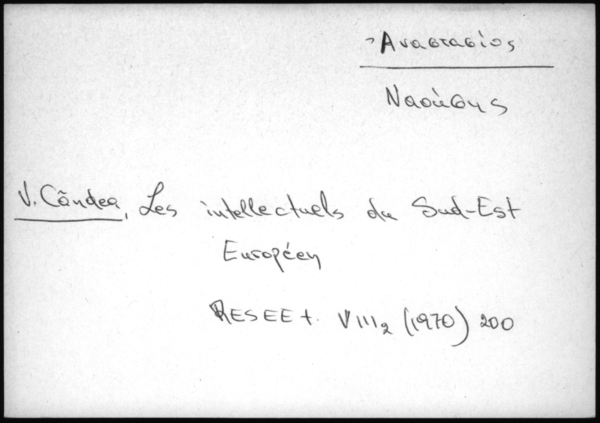 Ἀναστασίος
Ναούσης
V. Cândea, Les intellectuels du Sud-Est
Européen
RESEE t. VIII2 (1970) 200